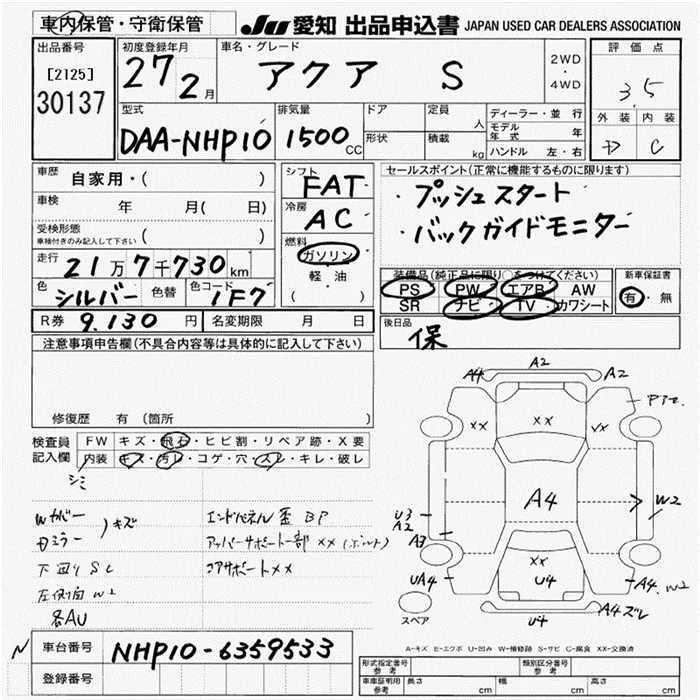 車内保管・守衛保管
JU 愛知 出品申込書 JAPAN USED CAR DEALERS ASSOCIATION
出品番号
[2125]
30137
初度登録年月
27 2月
車名・グレード
アクア S
2WD
・
4WD
評価点
3.5
外装 内装
C
型式
DAA-NHP10
排気量
1500CC
ドア
形状
定員
人
積載
kg
ディーラー・並行
モデル年式 年
ハンドル 左・右
車歴
自家用・( )
車検
年 月( 日)
受検形態
車検付きのみ記入して下さい ( )
走行
21万7千730km
色
シルバー
色替
色コード
1F7
シフト
FAT
冷房
AC
燃料
ガソリン
・
軽・油
( )
セールスポイント(正常に機能するものに限ります)
・プッシュスタート
・バックガイドモニター
装備品(純正品に限り○をつけてください)
PS PW エアB AW
SR ナビ TV カワシート
新車保証書
有・無
R券 9.130円
名変期限 月 日
後日品
保
注意事項申告欄(不具合内容等は具体的に記入して下さい)
修復歴 有(箇所
検査員
記入欄
FW キズ・飛石・ヒビ割・リペア跡・X要
内装 キズ・汚レ・コゲ・穴・スレ・キレ・破レ
シミ
Wカバー
ミラー
キズ
下廻りSL
W2
各AU
エンドパネル歪 BP
アッパーサポート一部XX(ボルト)
コアサポートXX
A2
A4
A2
XX
XX
A4
U3
A2
A3
W2
UA4
XX
U4
A4.W2
A4ズレ
U4
スペア
A-キズ E-エクボ U-凹み W-補修跡 S-サビ C-腐食 XX-交換済
N
車台番号
NHP10-6359533
登録番号
形式指定番号
参考
類別区分番号
参考
車庫証明用
参考
長さ cm
幅 cm
高さ cm